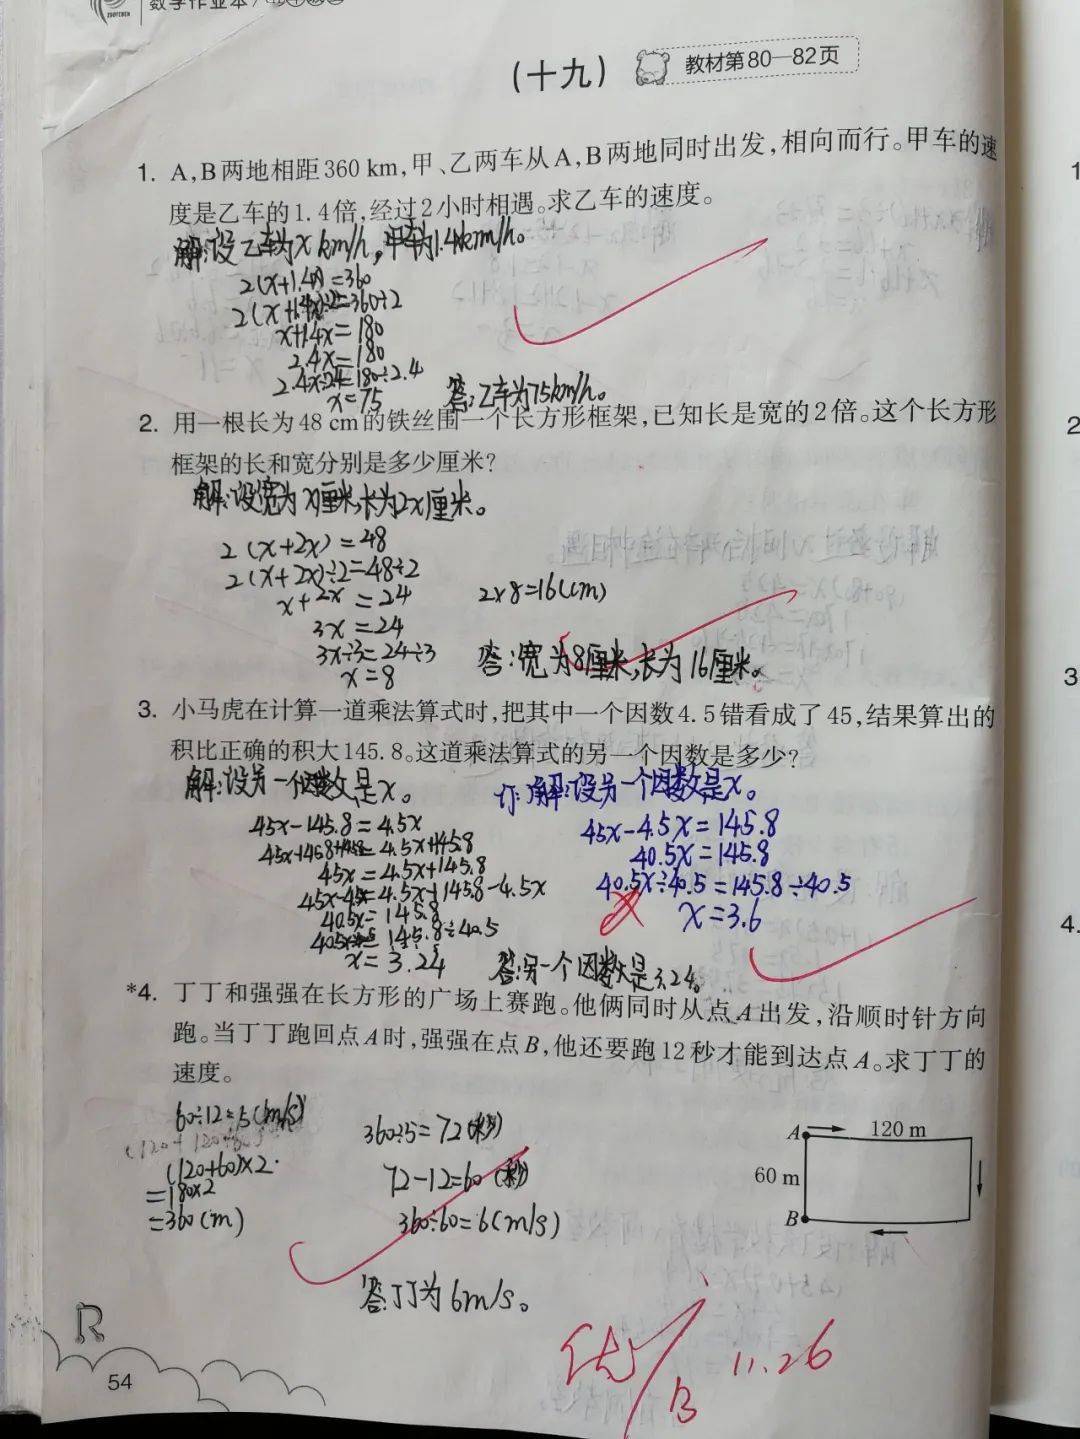 数学作业本
(十九)
教材第80—82页
1. A,B两地相距360 km,甲、乙两车从A,B两地同时出发,相向而行。甲车的速
度是乙车的1.4倍,经过2小时相遇。求乙车的速度。
解:设乙车为x km/h,甲车为1.4xkm/h。
2(x+1.4x)=360
2(x+1.4x)÷2=360÷2
x+1.4x=180
2.4x=180
2.4x÷2.4=180÷2.4
x=75
答:乙车为75km/h。
2. 用一根长为48 cm的铁丝围一个长方形框架,已知长是宽的2倍。这个长方形
框架的长和宽分别是多少厘米?
解:设宽为x厘米,长为2x厘米。
2(x+2x)=48
2(x+2x)÷2=48÷2
x+2x=24
3x=24
3x÷3=24÷3
x=8
2×8=16(cm)
答:宽为8厘米,长为16厘米。
3. 小马虎在计算一道乘法算式时,把其中一个因数4.5错看成了45,结果算出的
积比正确的积大145.8。这道乘法算式的另一个因数是多少?
解:设另一个因数是x。
45x-145.8=4.5x
45x-145.8+145.8=4.5x+145.8
45x=4.5x+145.8
45x-4.5x=4.5x+145.8-4.5x
40.5x=145.8
40.5x÷40.5=145.8÷40.5
x=3.24
答:另一个因数是3.24。
订:解:设另一个因数是x。
45x-4.5x=145.8
40.5x=145.8
40.5x÷40.5=145.8÷40.5
x=3.6
*4. 丁丁和强强在长方形的广场上赛跑。他俩同时从点A出发,沿顺时针方向
跑。当丁丁跑回点A时,强强在点B,他还要跑12秒才能到达点A。求丁丁的
速度。
60÷12=5(m/s)
(120+60)×2
=180×2
=360(m)
360÷5=72(秒)
72-12=60(秒)
360÷60=6(m/s)
答:丁丁为6m/s。
A
120 m
60 m
B
优
B
11.26
R
54